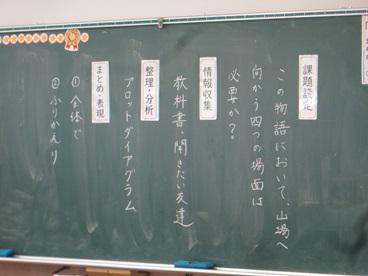 課題設定
この物語において、山場へ
向かう四つの場面は
必要か？
情報収集
教科書・聞きたい友達
整理・分析
プロットダイアグラム
まとめ・表現
①全体で
②ふりかえり